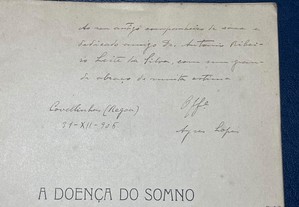 Ao seu antigo companheiro de somno e
dedicado amigo Dr. Antonio Ribei-
ro Leite da Silva, com um gran-
de abraço de muita estima
Covellinhas (Regoa)
Off.
31-XII-906
Ayres Lopes
A DOENÇA DO SOMNO